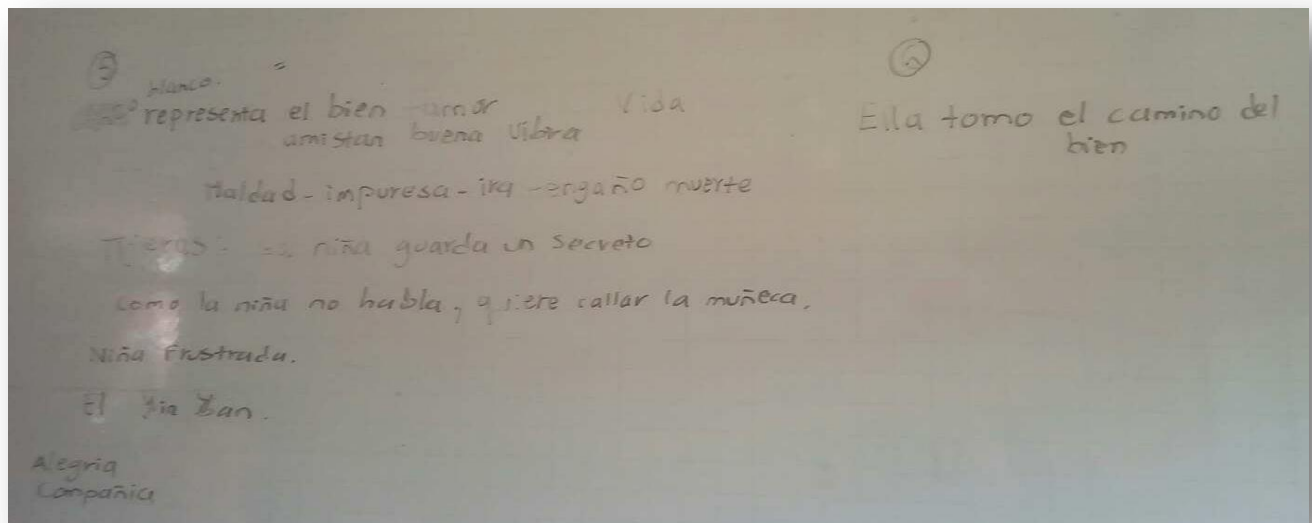 5
blanco. =
representa el bien - amor Vida
amistan buena vibra
Maldad - impuresa - ira - engaño muerte
Tijeras: niña guarda un secreto
como la niña no habla, quiere callar la muñeca.
Niña Frustrada.
El
Alegria
Compañia
6
Ella tomo el camino del
bien